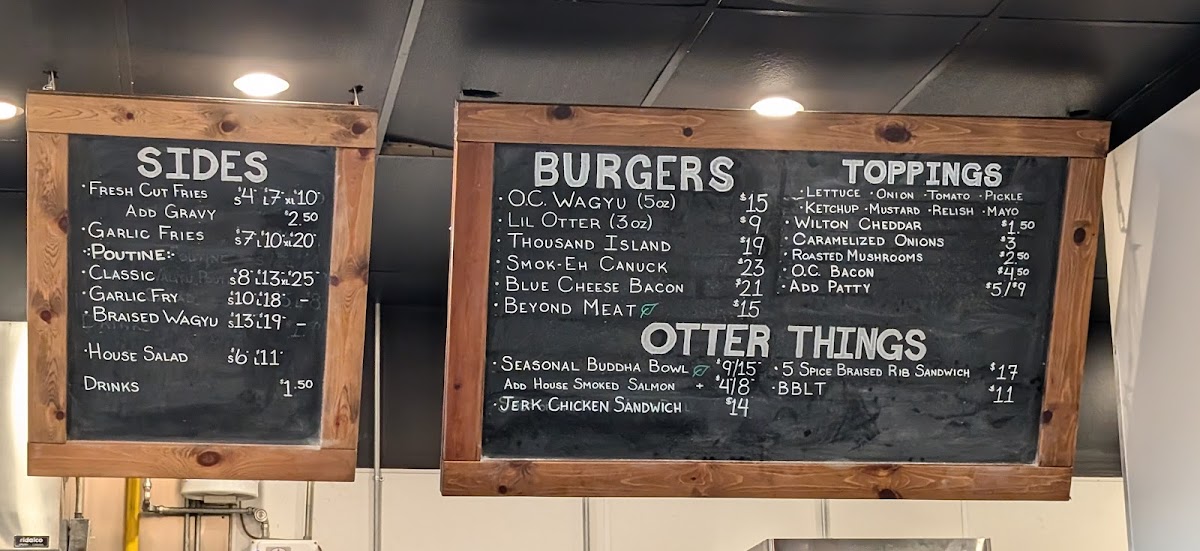 SIDES
· FRESH CUT FRIES S$4 L7 XL10
ADD GRAVY $2.50
· GARLIC FRIES S$7 L10 XL20
·:POUTINE:·
· CLASSIC S$8 L13 XL25
· GARLIC FRY S$10 L18 –
· BRAISED WAGYU S$13 L19 –
· HOUSE SALAD S$6 L11
DRINKS $1.50
BURGERS
· O.C. WAGYU (5oz) $15
· LIL OTTER (3oz) $9
· THOUSAND ISLAND $19
· SMOK-EH CANUCK $23
· BLUE CHEESE BACON $21
· BEYOND MEAT $15
TOPPINGS
· LETTUCE · ONION · TOMATO · PICKLE
· KETCHUP · MUSTARD · RELISH · MAYO
· WILTON CHEDDAR $1.50
· CARAMELIZED ONIONS $3
· ROASTED MUSHROOMS $2.50
· O.C. BACON $4.50
· ADD PATTY $5/$9
OTTER THINGS
· SEASONAL BUDDHA BOWL $9/15
ADD HOUSE SMOKED SALMON + $4/8
· JERK CHICKEN SANDWICH $14
· 5 SPICE BRAISED RIB SANDWICH $17
· BBLT $11
ridalco